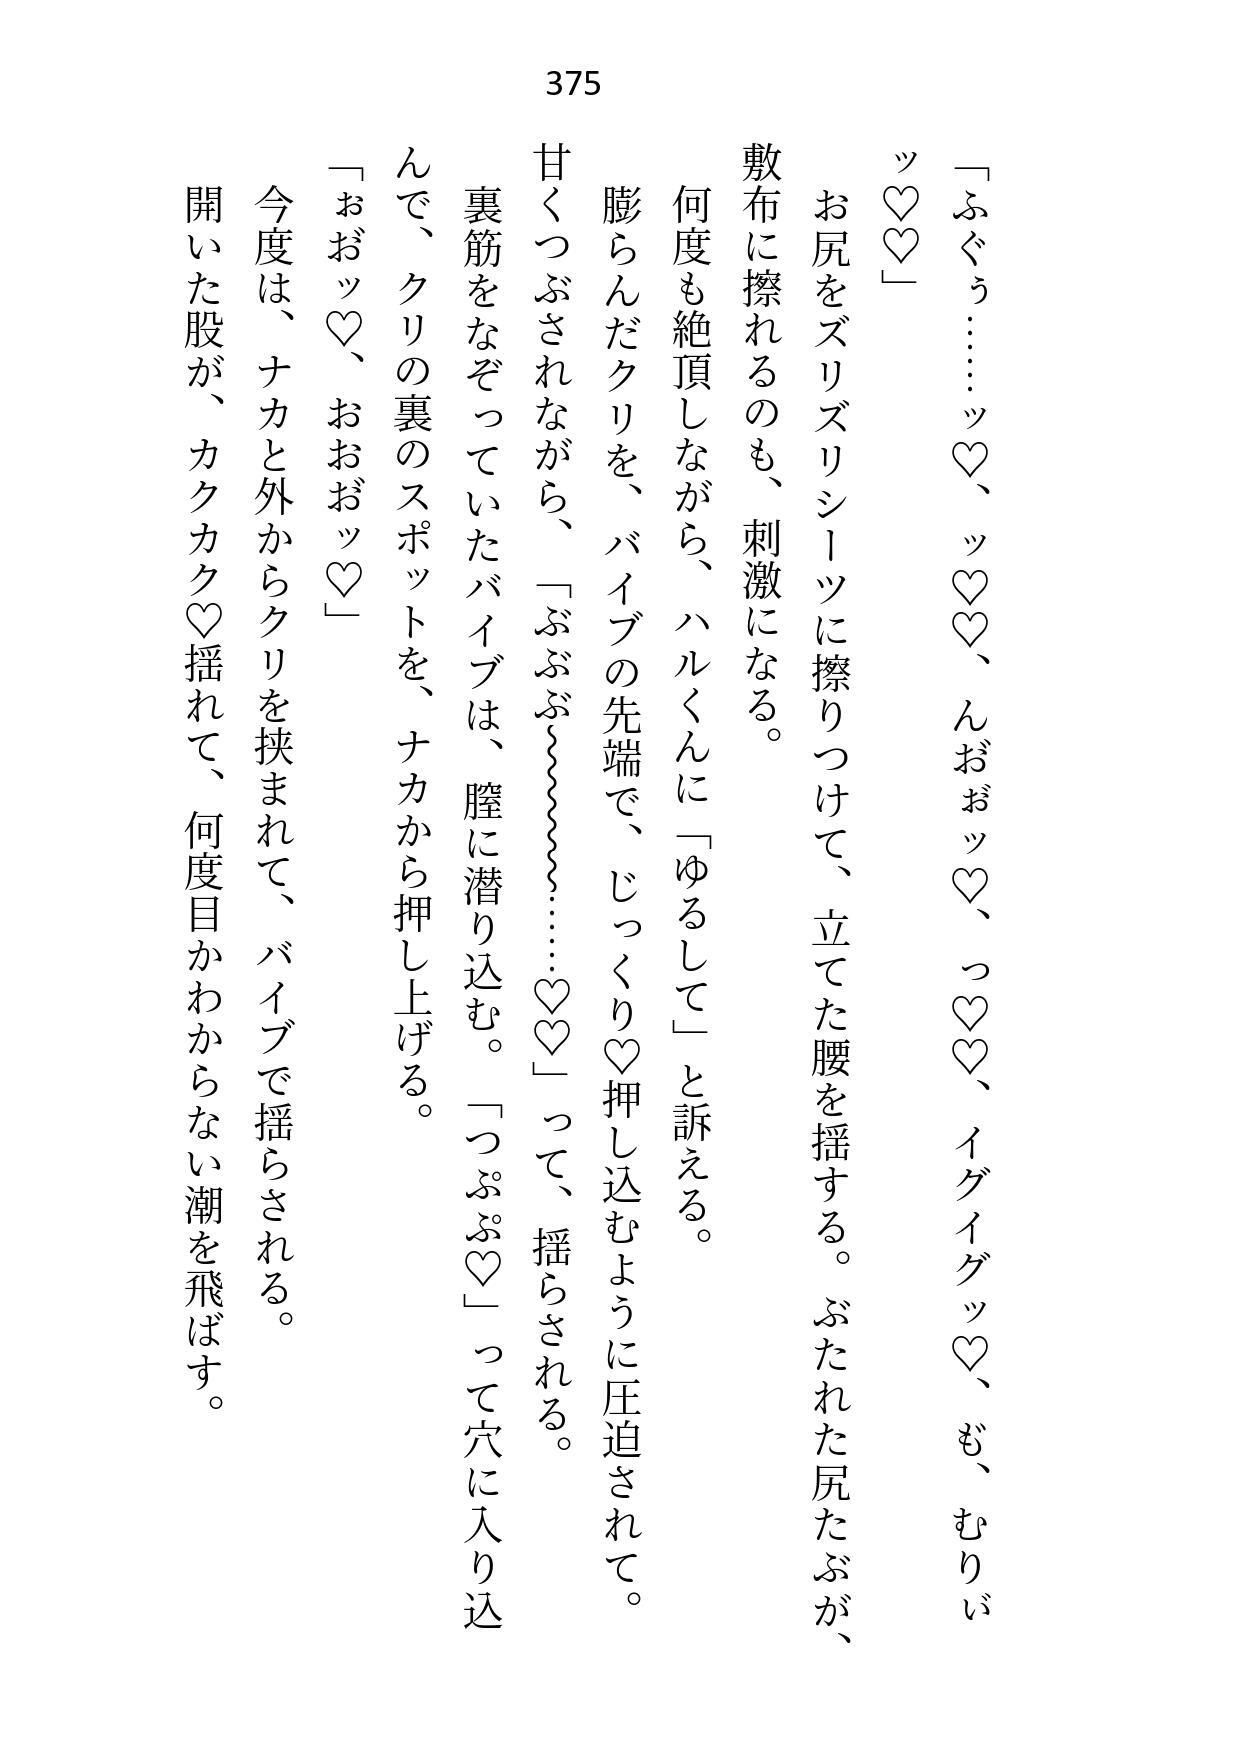 375
「ふぐぅ……ッ♡、ッ♡♡、んお゛ぉ゛ッ♡、っ♡♡、イグイグッ♡、も゛、むりぃ゛
ッ♡♡」
　お尻をズリズリシーツに擦りつけて、立てた腰を揺する。ぶたれた尻たぶが、
敷布に擦れるのも、刺激になる。
　何度も絶頂しながら、ハルくんに「ゆるして」と訴える。
　膨らんだクリを、バイブの先端で、じっくり♡押し込むように圧迫されて。
甘くつぶされながら、「ぶぶぶ〜〜〜〜……♡♡」って、揺らされる。
　裏筋をなぞっていたバイブは、膣に潜り込む。「つぷぷ♡」って穴に入り込
んで、クリの裏のスポットを、ナカから押し上げる。
「ぉお゛ッ♡、おおお゛ッ♡」
　今度は、ナカと外からクリを挟まれて、バイブで揺らされる。
　開いた股が、カクカク♡揺れて、何度目かわからない潮を飛ばす。